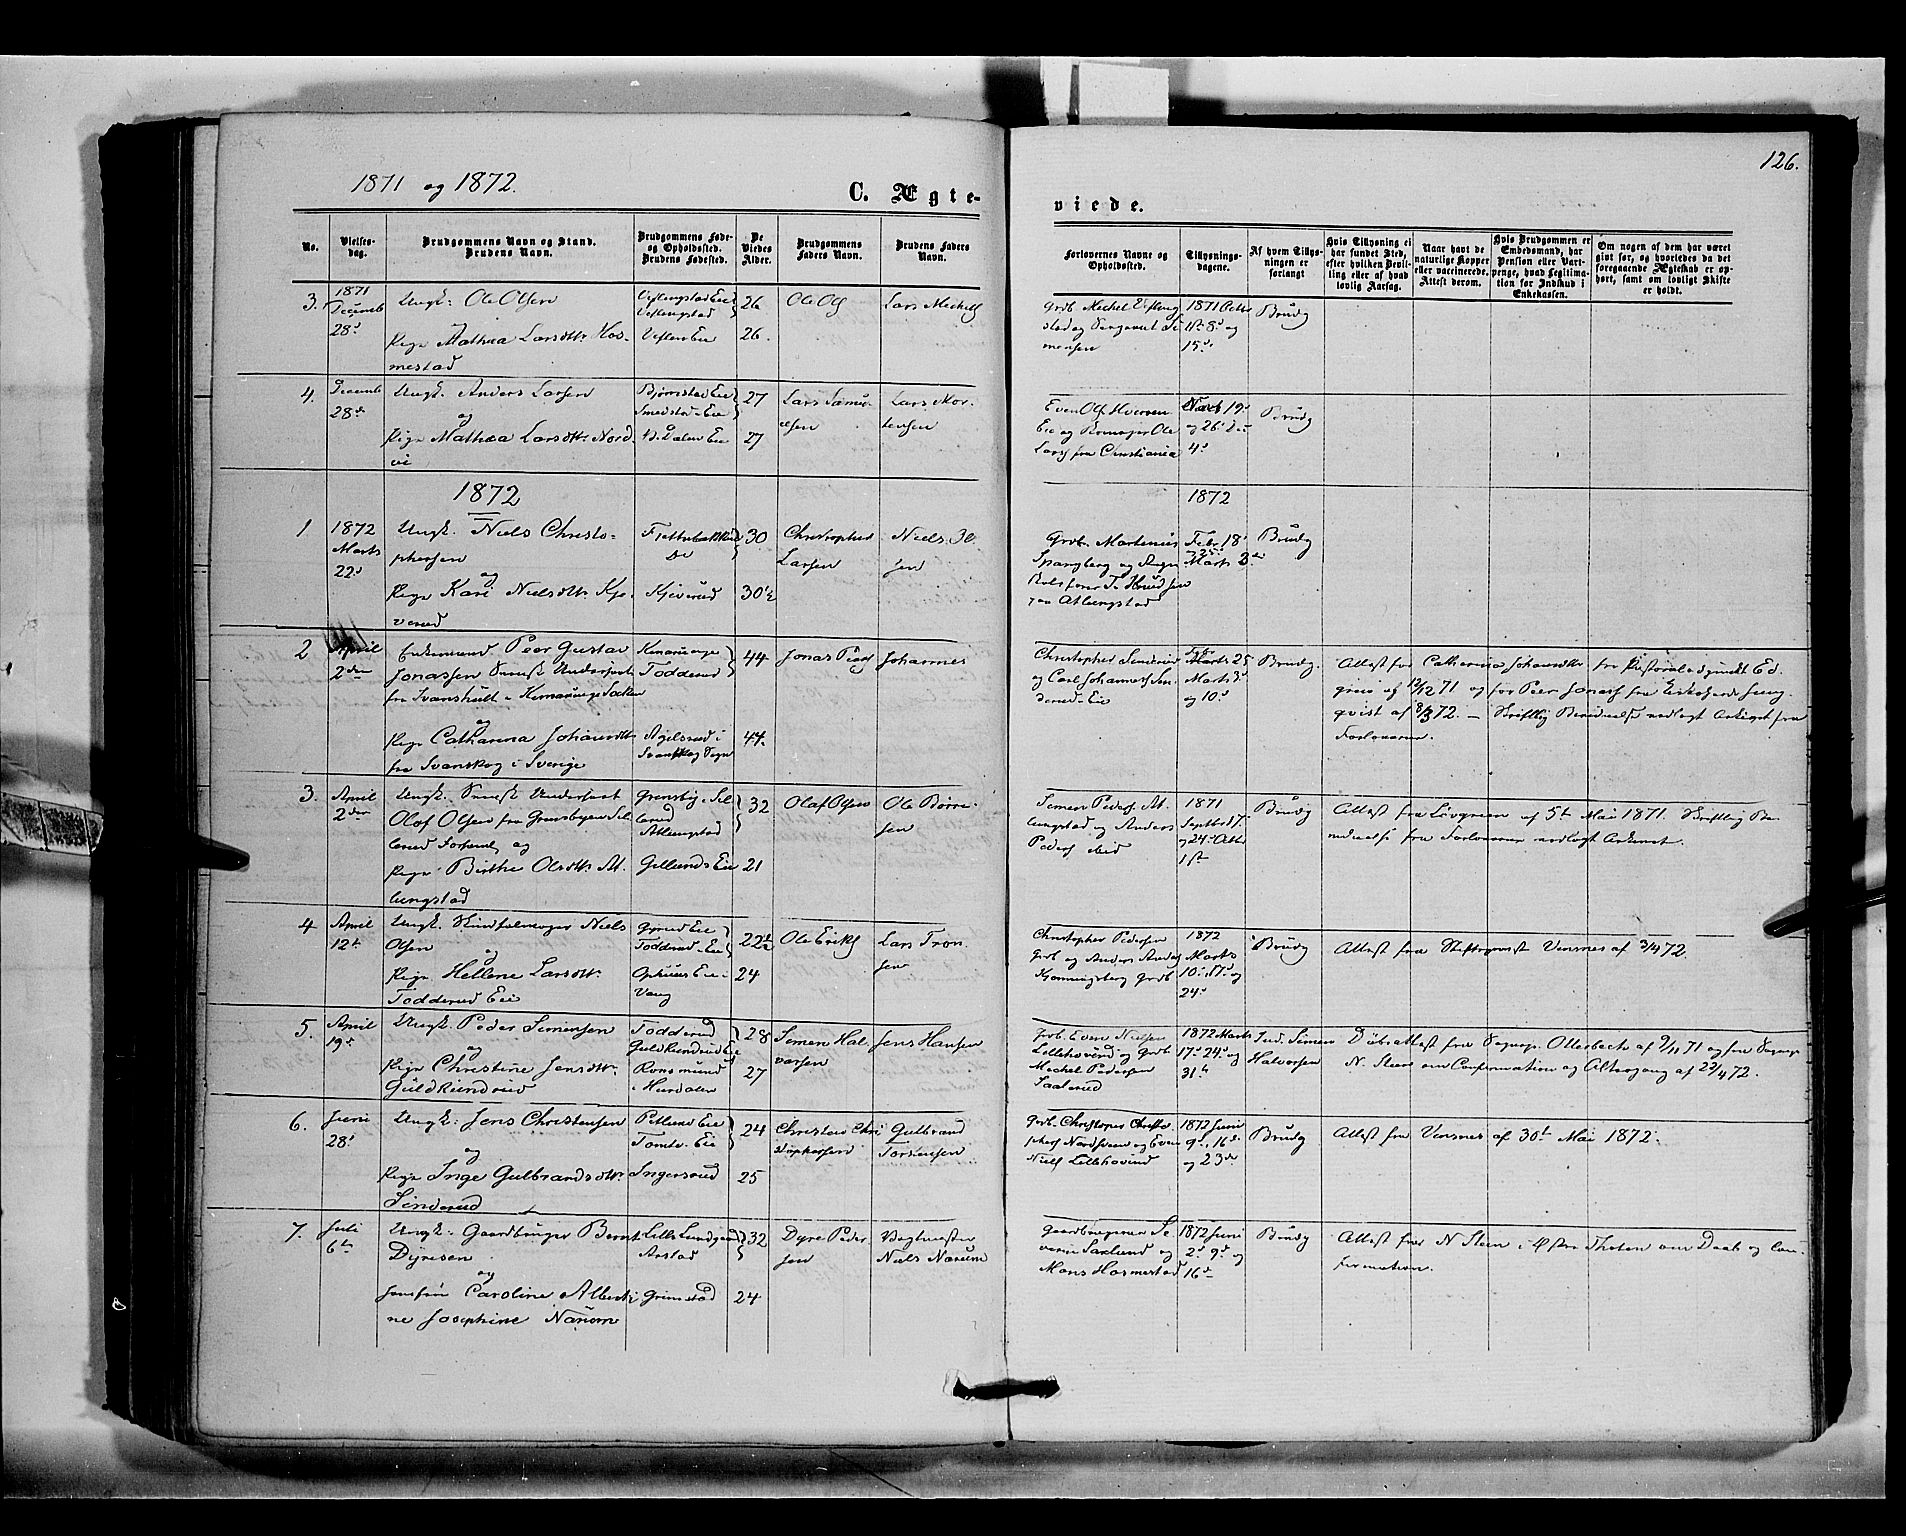 126.
1871 og 1872.
C. Ægte-
viede.
No.
Vielses-
dag.
Brudgommens Navn og Stand.
Brudens Navn.
Brudgommens Føde-
og Opholdssted.
Brudens Fødested.
De
Viedes
Alder.
Brudgommens
Faders Navn.
Brudens Faders
Navn.
Forlovernes Navne og
Opholdssted.
Tillysnings-
dagene.
Af hvem Tillys-
ningen er
forlangt
Hvis Tillysning ei
har fundet Sted,
efter hvilken Bevil-
ling eller af hvad
lovlig Aarsag.
Naar havt de
naturlige Kopper
eller vaccinerede.
Attest derom.
Hvis Brudgommen er
Embedsmand, har
Pension eller Vart-
penge, hvad Legitima-
tion for Indskud i
Enkekassen.
Om nogen af dem har været
gift før, og hvorledes da det
foregaaende Ægteskab er op-
hørt, samt om lovligt Skifte
er holdt.
3.
1871
Decemb
28d
Ungk: Ole Olsen
Pige Mathea Larsdtr. Hos-
mestad
Veflengstad Eie
Veflengstad
26
26.
Ole Ols
Lars Michels
Grdb. Michel Vefleng
stad og Sergeant Si
mensen
1871 Octbr
1st 8d og
15d
Brudg
4.
Decemb
28de
Ungk. Anders Larsen
og
Pige Mathea Larsdtr. Nord-
vi
Bjørnstad Eie
Smedstad-Eie
27
27
Lars Samu
elsen
Lars Mor-
tensen
Even Ols
Eie og Ole
Lars fra Christiania
19d
og 26d
4d
Brudg
1872
1872
1
1872
Marts
22d
Ungk. Niels Christo-
phersen
og
Pige Kari Nielsdtr. Kje-
verud
Kjeverud
30
30½
Christopher
Larsen
Niels
sen
Grdb. Martenius
Spangberg og
paa Atlungstad
Febr 18d
25d
Marts 3die
Brudg
2
April
2den
Enkemand Peer Gustav
Jonassen Svensk Undersaat
fra Ivanshult i Kinarunge Socken
og
Pige Catharina Johansdtr
fra Svanskog i Sverige
Kinarunge
Todderud
Agelsrud i
Svanskog Sogn
44
44.
Jonas Peers
Johannes
Christopher Sinderud
og Carl Johannesen Sin
derud-Eie
Febr
Marts 25
Marts 3d
og 10d
Brudg.
Attest for Catharina Johansdtr fra Pastoralembedet Ed
af 12/12 71 og for Peer Jonass fra
qvist af 8/3 72. — Skriftlig
Forloverne.
3.
April
2den
Ungk. Svensk Undersaat
Olof Olsen fra Gransbyen Sil
lerud og
Pige Birthe Olsdtr. At-
lungstad
Gransby i Sil
lerud
Atlungstad
Gillunds Eie
32
21
Olaf Olsen
Ole Børre-
sen
Simen Peders. At
lungstad og Anders
Peders
1871
Septbr 17.
og 24d Octbr
1st
Brudg
Attest fra Lövgreen af 5te Mai 1871. Skriftlig
fra Forloverne vedlagt Arkivet.
4
April
12te
Ungk. Niels
Olsen
og
Pige Hellene Larsdtr.
Todderud Eie
Grøud Eie
Todderud-Eie
Ophuus Eie i
Vang
22½
24
Ole Eriks
Lars Tron
sen
Christopher Pedersen
Grdb og Anders Anders
Kjonningsberg Grdb
1872
Marts
10. 17d og
24d
Brudg
Attest fra Stiftsprovst Vensnes af 3/4 72.
5.
April
19d
Ungk. Peder Simensen
og
Pige Christine Jensdtr.
Guldkundrud
Todderud
Guldkundrud Eie
Ronsmund
i Hurdalen
28
27
Simen Hal-
vorsen
Jens Hansen
Grdb. Even Nielsen
Lillehovind og Grdb
Michel Pedersen
Saalerud
1872 Marts
17d 24d og
31te
Ind. Simen
Halvorsen
Döbsattest fra Sognep. Ottesbech af 9/11 71 og fra Sognep
N. Steen om Confirmation og Altergang af 22/4 72.
6.
Juni
28d
Ungk: Jens Christensen
og
Pige Inge Gulbrandsdtr.
Sinderud
Petlund Eie
Tomte-Eie
Ingersrud
24
25
Christen Chri
stophersen
Gulbrand
Torstensen
Grdb. Christopher Christo
phers Nordsveen og Even
Niels Lillehovind
1872 Juni
9d, 16de
og 23de
Brudg
Attest fra Vensnes af 30te Mai 1872.
7.
Juli
6te
Ungk: Gaardbruger Bernt
Dyresen
og
Jomfru Caroline Alberti-
ne Josephine Nærum
Lille Lundgaard
Arstad
Grimstad
32
24
Dyre Peder
sen
Vagtmester
Niels Nærum
Gaardbrugerne Se
verin Saxlund og
Mons Hosmestad
1872 Juni
2d 9d og
16de
Brudg
Attest fra N Steen i Østre Thoten om Daab og Con-
firmation.